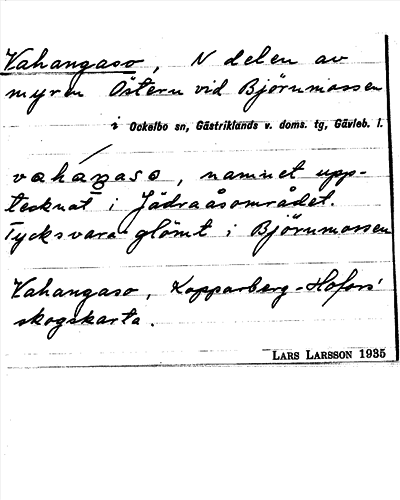 Vahangaso, N delen av
myren Östern vid Björnmossen
i Ockelbo sn, Gästriklands v. doms. tg, Gävleb. l.
vahaŋaso, namnet upp-
tecknat i Jädraåsområdet.
Tycks vara glömt i Björnmossen
Vahangaso, Kopparberg-Hofors
skogskarta.
LARS LARSSON 1935